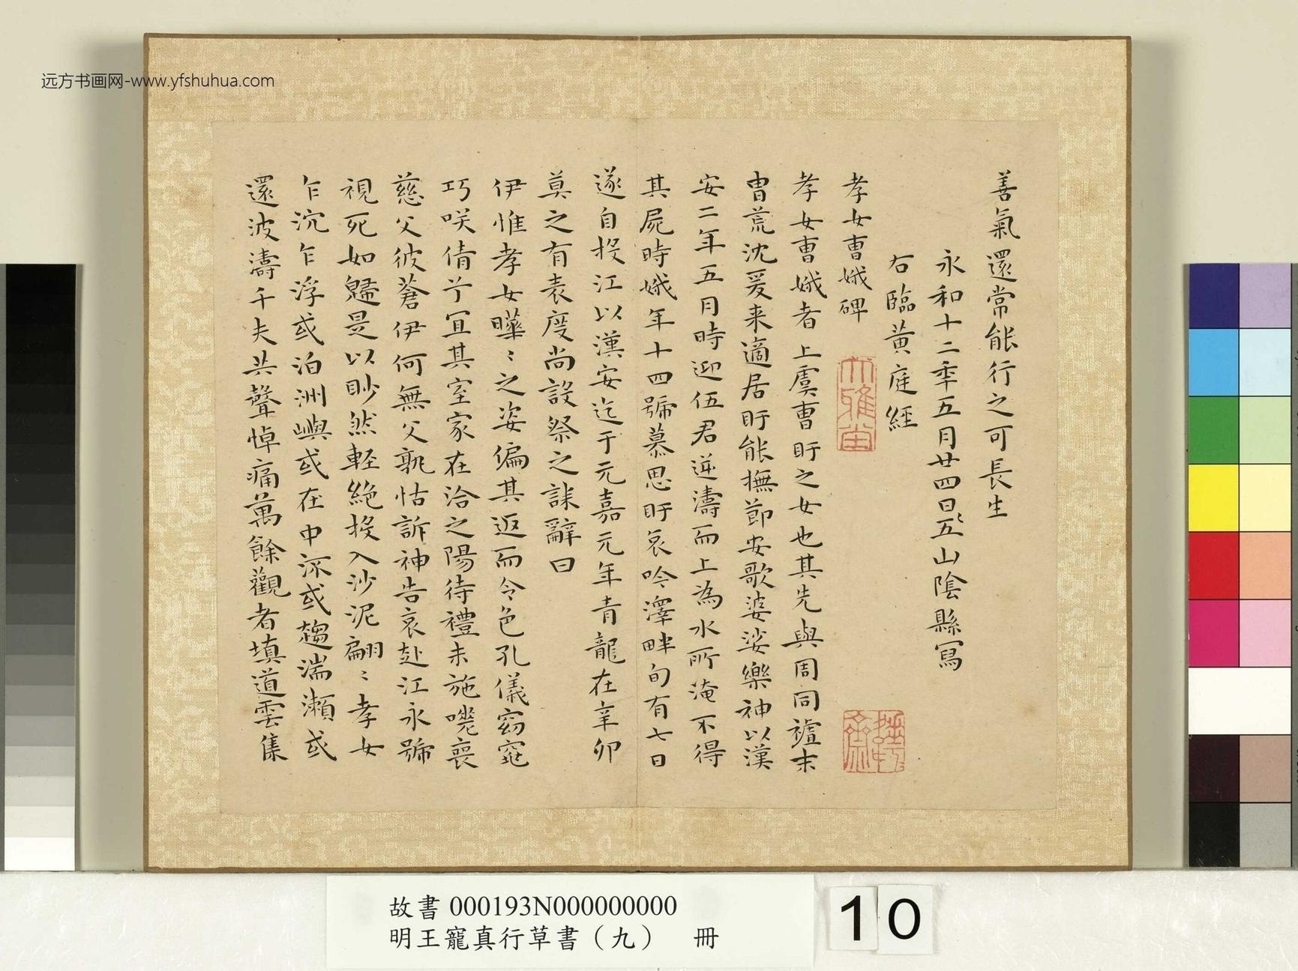 远方书画网-www.yfshuhua.com
善氣還常能行之可長生
永和十二年五月廿四日五山陰縣寫
右臨黃庭經
孝女曹娥碑
孝女曹娥者上虞曹盱之女也其先與周同𥘵末
胄荒沈爰来適居盱能撫節安歌婆娑樂神以漢
安二年五月時迎伍君逆濤而上為水所淹不得
其屍時娥年十四號慕思盱哀吟澤畔旬有七日
遂自投江以漢安迄于元嘉元年青龍在辛卯
莫之有表度尚設祭之誄辭曰
伊惟孝女曄〻之姿偏其返而令色孔儀窈窕
巧咲倩兮宜其室家在洽之陽待禮未施嗟喪
慈父彼蒼伊何無父孰怙訴神告哀赴江永號
視死如歸是以眇然輕絕投入沙泥翩〻孝女
乍沉乍浮或泊洲嶼或在中流或趨湍瀨或
還波濤千夫共聲悼痛萬餘觀者填道雲集
故書 000193N000000000
明王寵真行草書（九） 冊
10